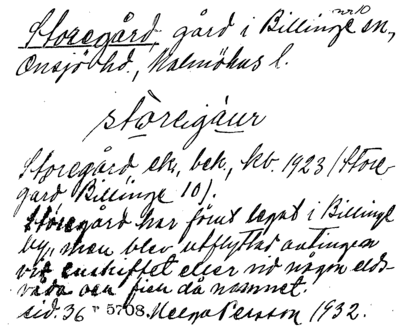 Storegård, gård i Billinge sn,
nr 10
Onsjö hd., Malmöhus l.
storegåur
Storegård, ek. bek., kv. 1923 (Store-
gård Billinge 10).
Storegård har förut legat i Billinge
by, men blev utflyttad antingen
vid enskiftet eller vid någon elds-
våda och fick då namnet.
sid. 36 n 5708. Helga Persson 1932.